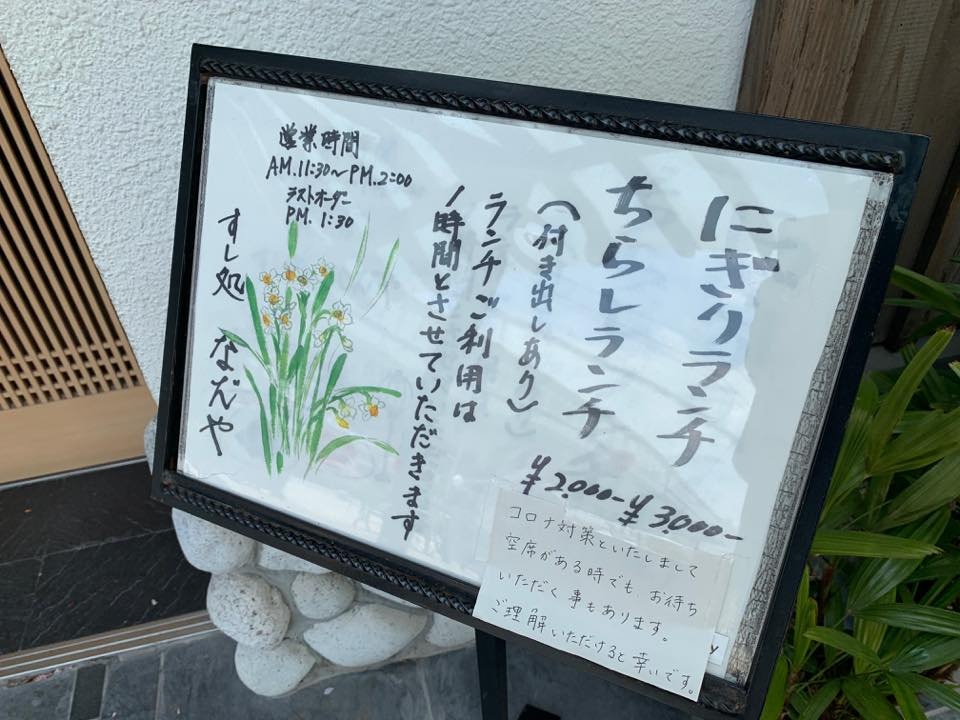 にぎりランチ
¥3,000-
ちらしランチ
¥2,000-
(付き出しあり)
ランチご利用は
1時間とさせていただきます
営業時間
AM.11:30〜PM.2:00
ラストオーダー
PM.1:30
すし処 なだや
コロナ対策といたしまして
空席がある時でも、お待ち
いただく事もあります。
ご理解いただけると幸いです。
y